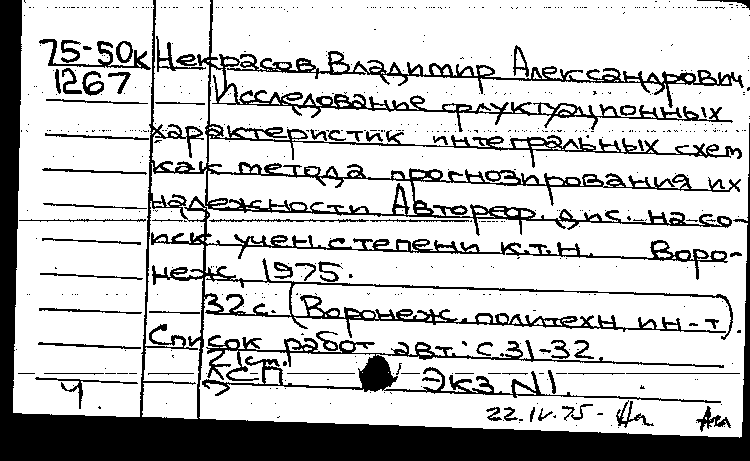 75-50к Некрасов, Владимир Александрович.
1267 Исследование флуктуационных
характеристик интегральных схем
как метода прогнозирования их
надежности. Автореф. дис. на со-
иск. учен. степени к.т.н. Воро-
неж, 1975.
32 с. (Воронеж. политехн. ин-т).
Список работ авт.: с. 31-32.
Экз. N1.
Ч.
22.IV.75-